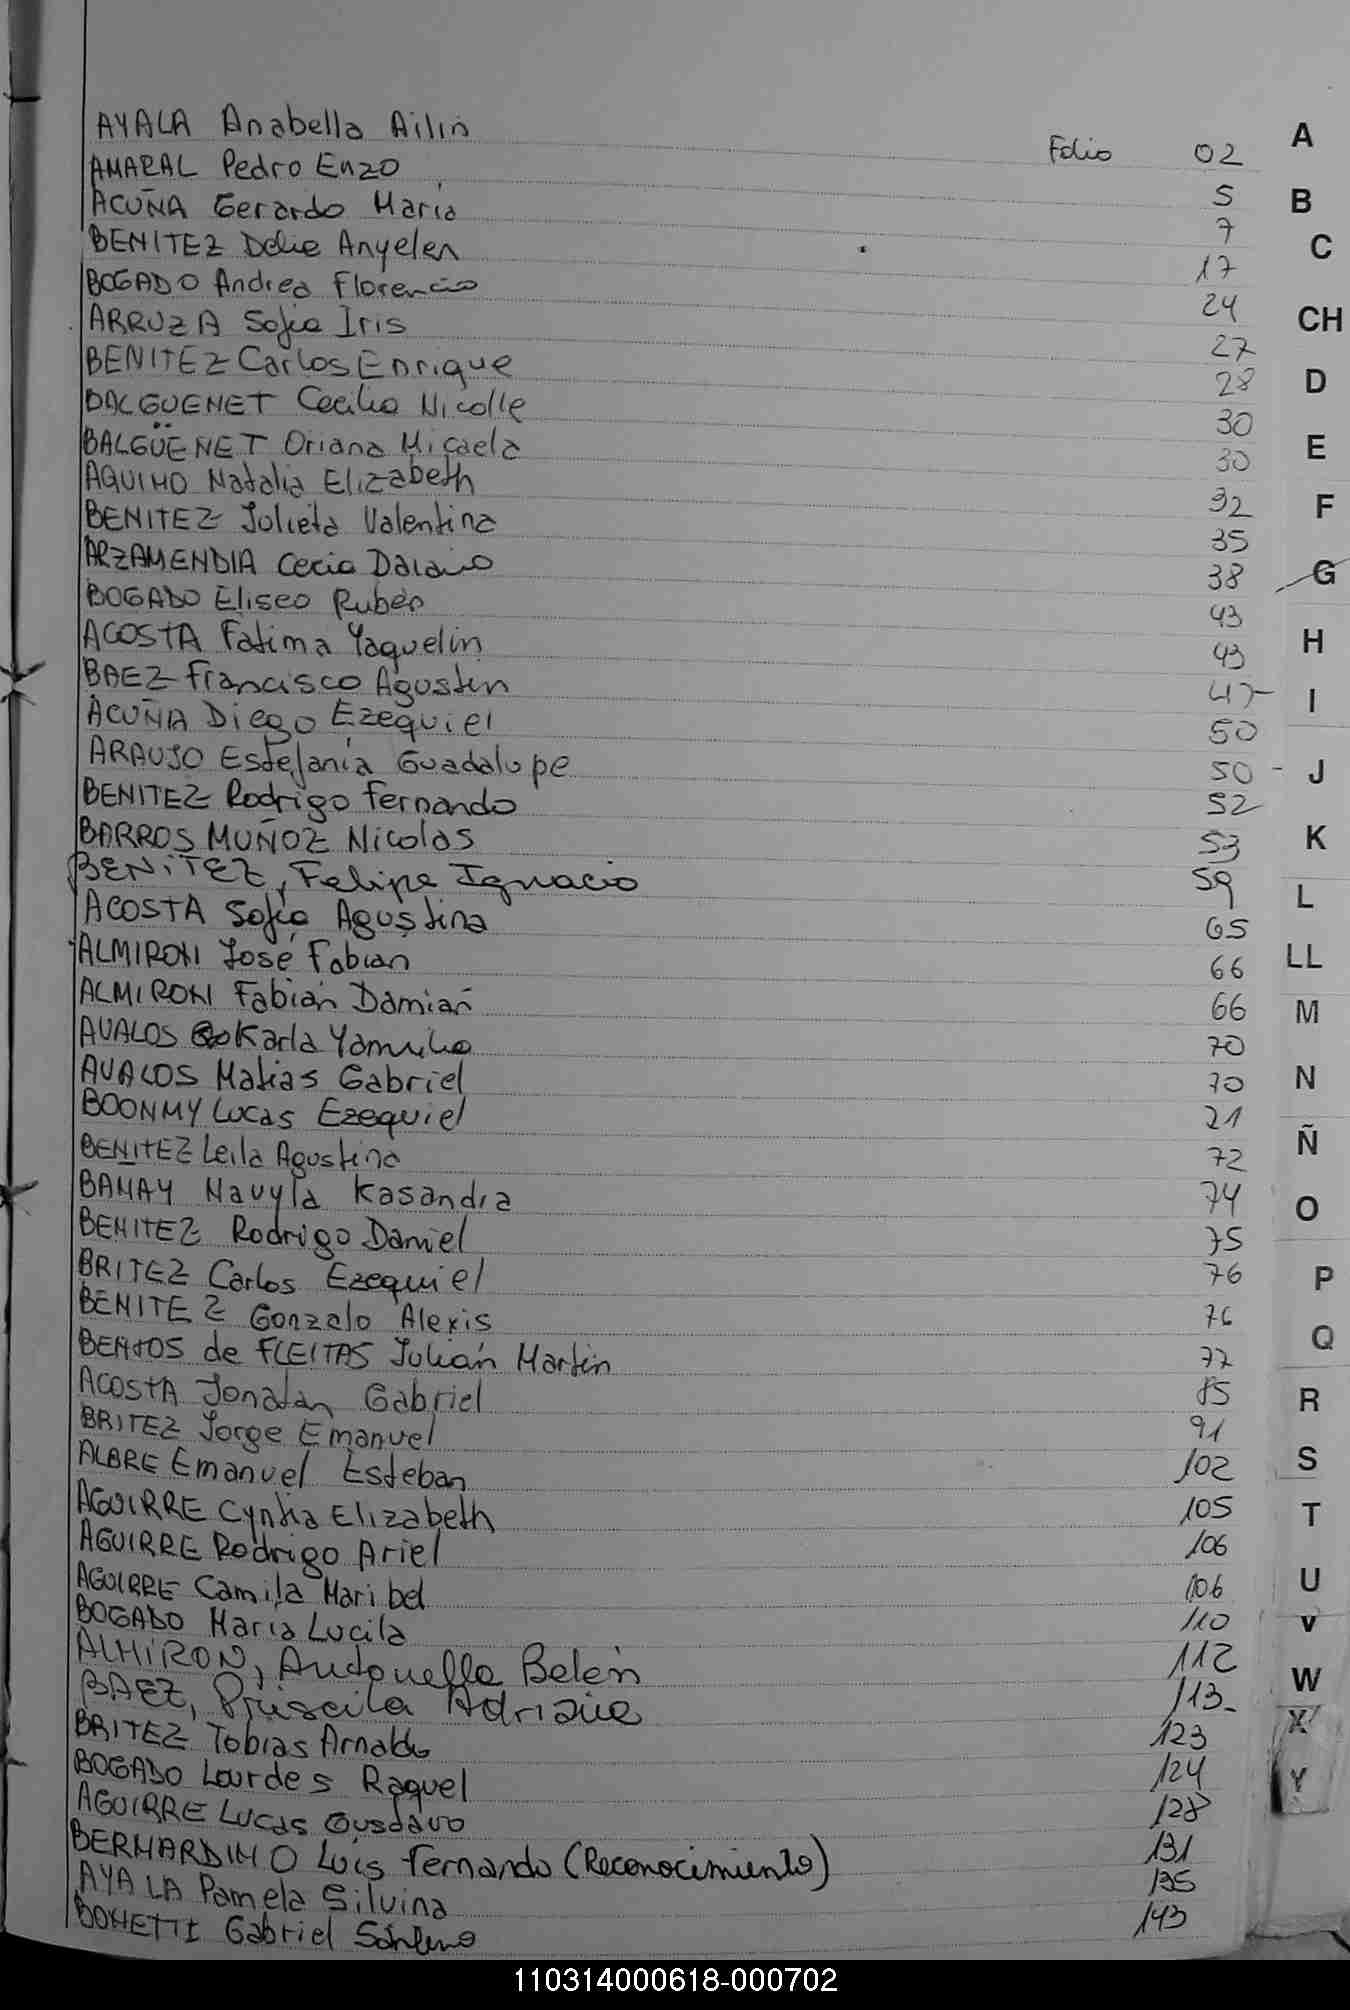 AYALA Anabella Ailin Folio 02
AMARAL Pedro Enzo 5
ACUÑA Gerardo Maria 7
BENITEZ Delie Anyelen 17
BOGADO Andrea Florencia 24
ARRUZA Sofia Iris 27
BENITEZ Carlos Enrique 28
BALGUENET Cecilia Nicolle 30
BALGÜENET Oriana Micaela 30
AQUINO Natalia Elizabeth 32
BENITEZ Julieta Valentina 35
ARZAMENDIA Cecia Daiana 38
BOGADO Eliseo Rubén 43
ACOSTA Fatima Yaquelin 43
BAEZ Francisco Agustin 47
ACUÑA Diego Ezequiel 50
ARAUJO Estefanía Guadalupe 50 -
BENITEZ Rodrigo Fernando 52
BARROS MUÑOZ Nicolas 53
BENITEZ, Felipe Ignacio 59
ACOSTA Sofia Agustina 65
ALMIRON José Fabian 66
ALMIRON Fabián Damián 66
AVALOS Karla Yamila 70
AVALOS Matias Gabriel 70
BOONMY Lucas Ezequiel 21
BENITEZ Leila Agustina 72
BAHAY Nauyla Kasandra 74
BENITEZ Rodrigo Daniel 75
BRITEZ Carlos Ezequiel 76
BENITEZ Gonzalo Alexis 76
BENTOS de FLEITAS Julián Martin 77
ACOSTA Jonatan Gabriel 85
BRITEZ Jorge Emanuel 91
ALBRE Emanuel Esteban 102
AGUIRRE Cyntia Elizabeth 105
AGUIRRE Rodrigo Ariel 106
AGUIRRE Camila Maribel 106
BOGADO Maria Lucila 110
ALMIRON, Antonella Belén 112
BAEZ, Priscila Adriana 113-
BRITEZ Tobias Arnaldo 123
BOGADO Lourdes Raquel 124
AGUIRRE Lucas Gustavo 128
BERNARDINO Luis Fernando (Reconocimiento) 131
AYALA Pamela Silvina 135
BONETTI Gabriel 143
A
B
C
CH
D
E
F
G
H
I
J
K
L
LL
M
N
Ñ
O
P
Q
R
S
T
U
V
W
X
Y
110314000618-000702